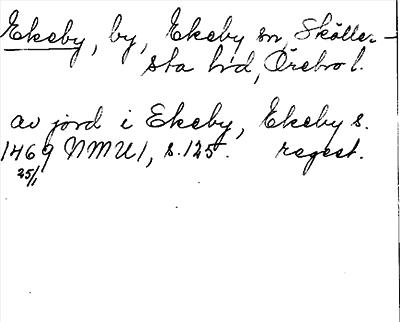 Ekeby, by, Ekeby sn, Sköller-
sta hd, Örebro l.
av jord i Ekeby, Ekeby s.
1469 NMU 1, s. 125. regest.
25/1